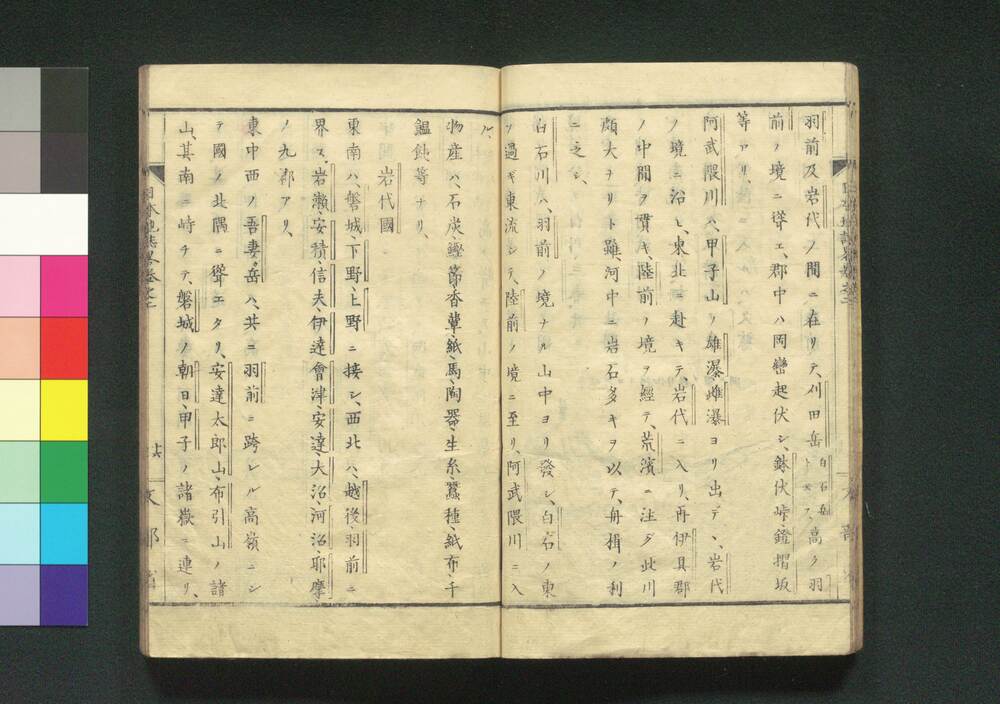 羽前及岩代ノ間ニ在リテ、刈田岳白石岳トモ云フ、高ク羽
前ノ境ニ聳エ、郡中ハ岡巒起伏シ、鉢伏峠、鐙摺坂
等アリ、
阿武隈川ハ、甲子山ノ雄瀑雌瀑ヨリ出デヽ、岩代
ノ境ニ沿ヒ、東北ニ赴キテ岩代ニ入リ、再伊具郡
ノ中間ヲ貫キ、陸前ノ境ヲ經テ、荒濱ニ注グ、此川
頗大ナリト雖、河中ニ岩石多キヲ以テ、舟楫ノ利
ニ乏シ、
白石川ハ、羽前ノ境ナル山中ヨリ發シ、白石ノ東
ヲ過ギ東流シテ、陸前ノ境ニ至リ、阿武隈川ニ入
ル、
物産ハ、石炭、鰹節、杏、蕈、紙、馬、陶器、生糸、蠶種、紙布、干
饂飩等ナリ、
岩代國
東南ハ、磐城、下野、上野ニ接シ、西北ハ、越後、羽前ニ
界ス、岩瀬、安積、信夫、伊達、會津、安達、大沼、河沼、耶摩
ノ九郡アリ、
東中西ノ吾妻岳ハ、共ニ羽前ニ跨レル高嶺ニシ
テ國ノ北隅ニ聳エタリ、安達太郎山、布引山ノ諸
山、其南ニ峙チテ、磐城ノ朝日、甲子ノ諸嶽ニ連リ、
日本地誌略卷之二
文部省